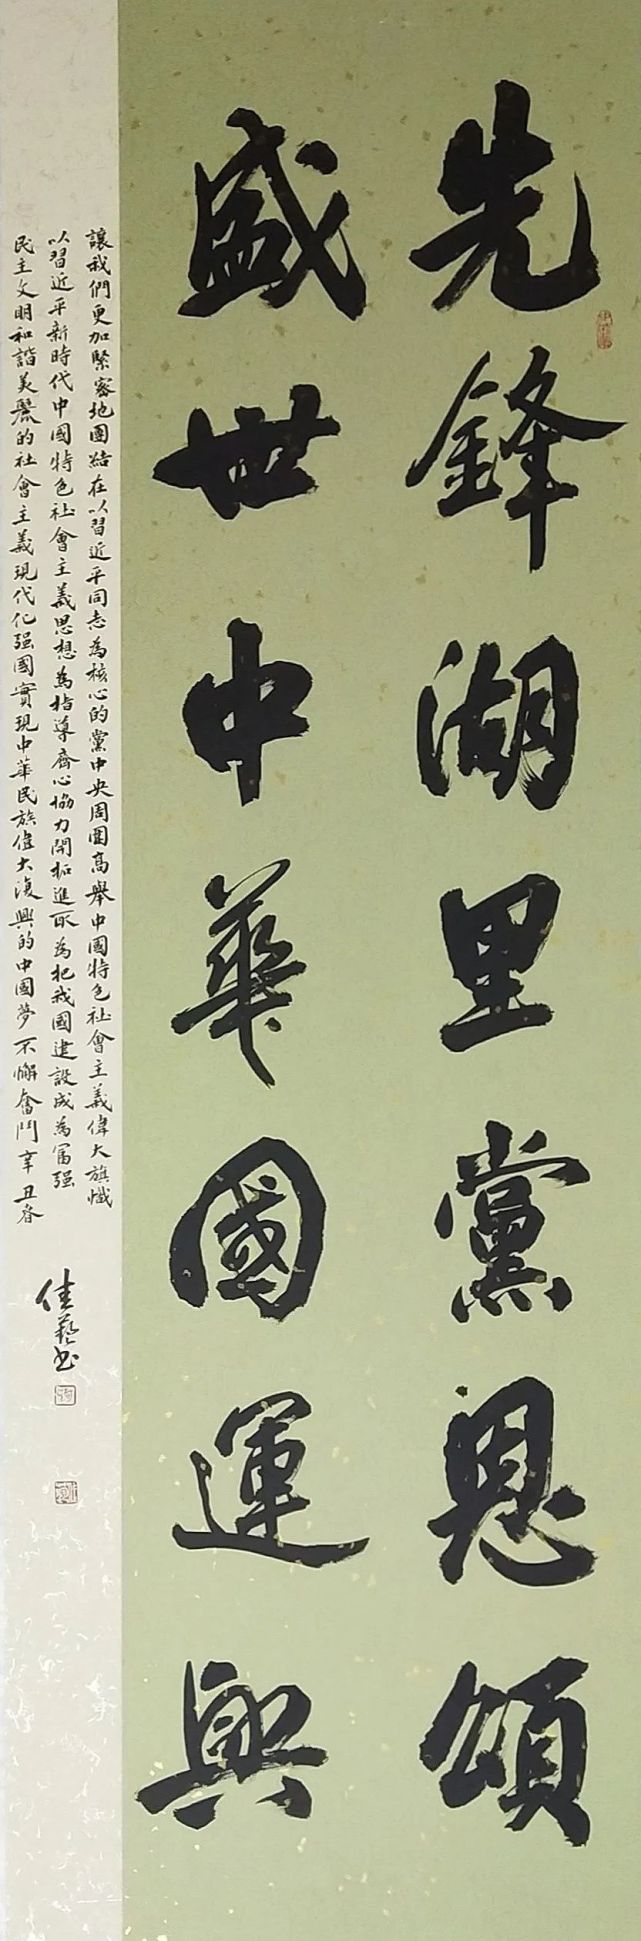 先鋒湖里黨恩頌
盛世中華國運興
讓我們更加緊密地團結在以習近平同志為核心的黨中央周圍高舉中國特色社會主義偉大旗幟
以習近平新時代中國特色社會主義思想為指導齊心協力開拓進取為把我國建設成為富强
民主文明和諧美麗的社會主義現代化强國實現中華民族偉大復興的中國夢不懈奮鬥辛丑春
佳藝书